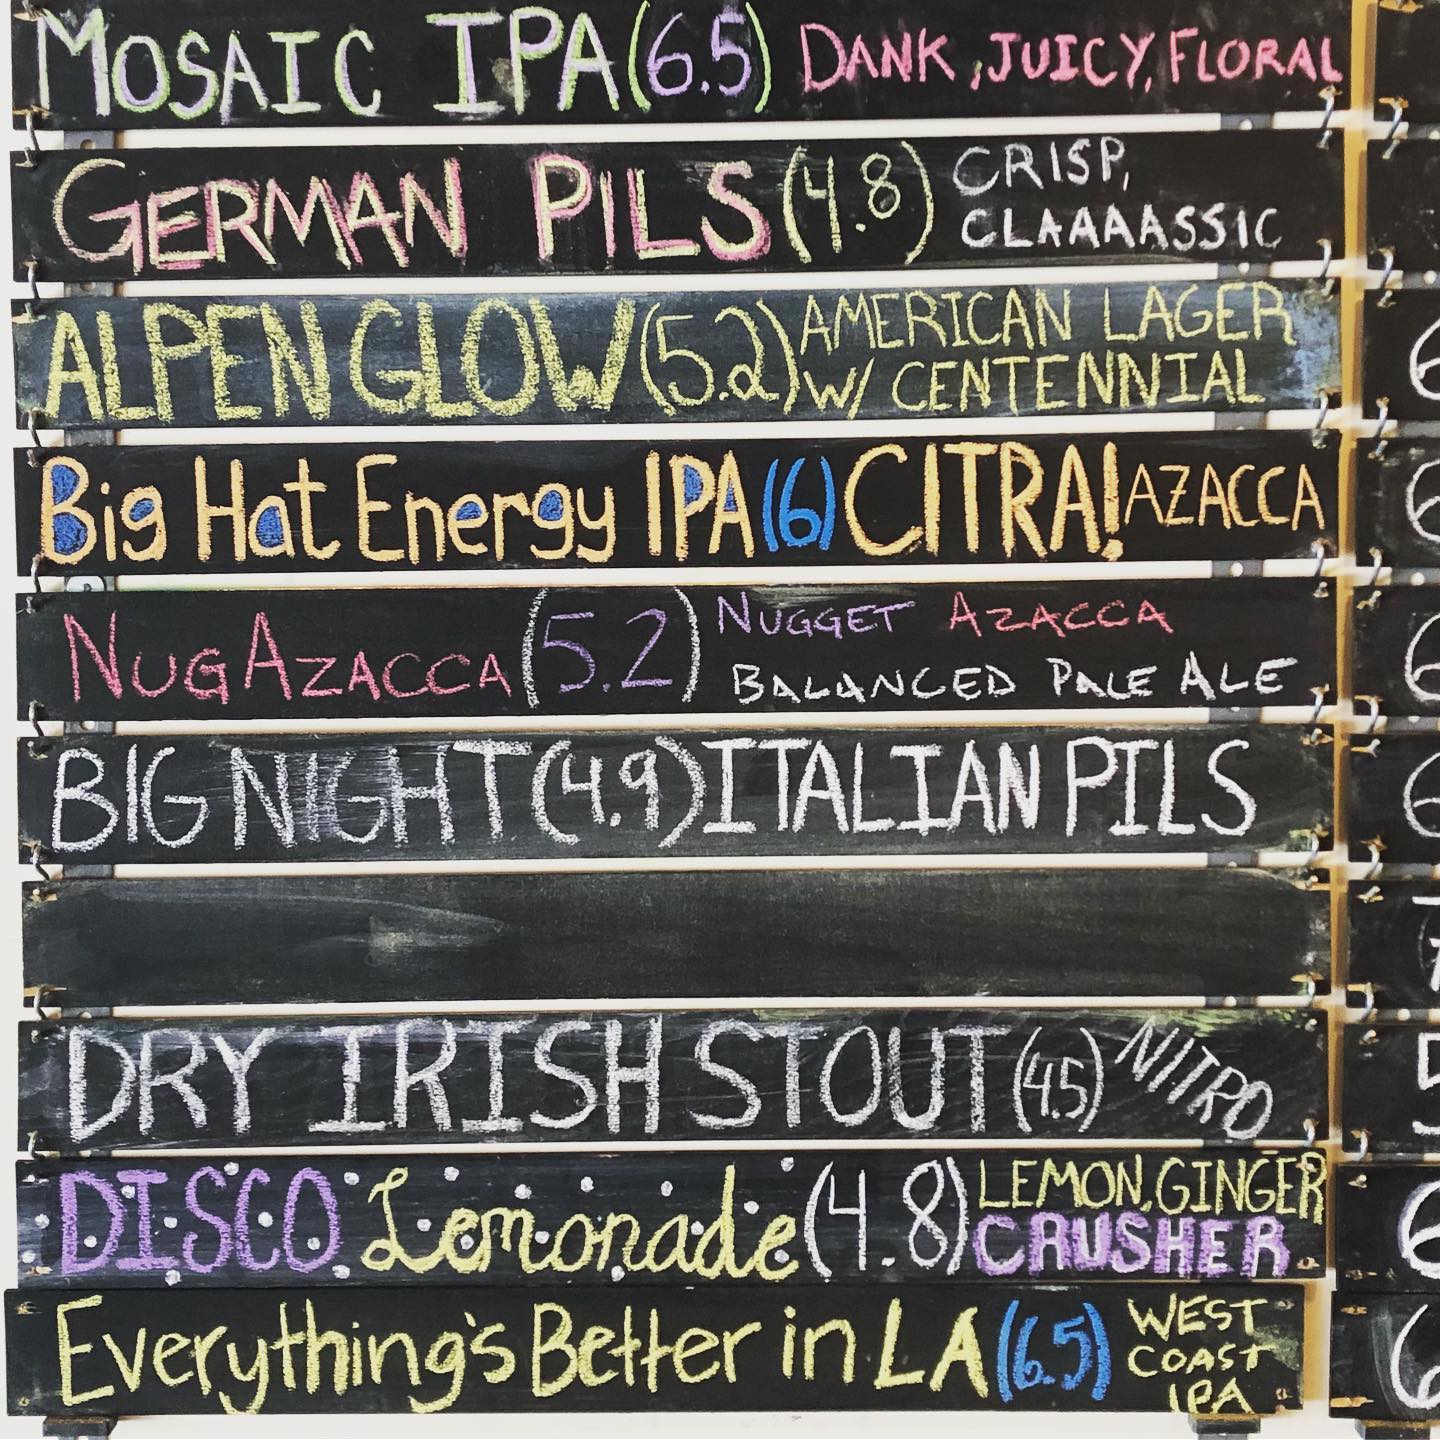 MOSAIC IPA (6.5) DANK, JUICY, FLORAL
GERMAN PILS (4.8) CRISP,
CLAAAASSIC
ALPEN GLOW (5.2) AMERICAN LAGER
W/ CENTENNIAL
Big Hat Energy IPA (6) CITRA! AZACCA
NUGAZACCA (5.2) NUGGET AZACCA
BALANCED PALE ALE
BIG NIGHT (4.9) ITALIAN PILS
DRY IRISH STOUT (4.5) NITRO
DISCO Lemonade (4.8) LEMON, GINGER
CRUSHER
Everything's Better in LA (6.5) WEST
COAST
IPA